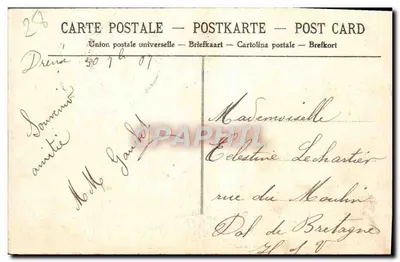 28
CARTE POSTALE — POSTKARTE — POST CARD
Union postale universelle — Briefkaart — Cartolina postale — Brefkort
30 9b 07
Souvenir
amitié
M M Gaudet
CPARTPHIL
Mademoiselle
Célestine Lechartier
rue du Moulin
Dol de Bretagne